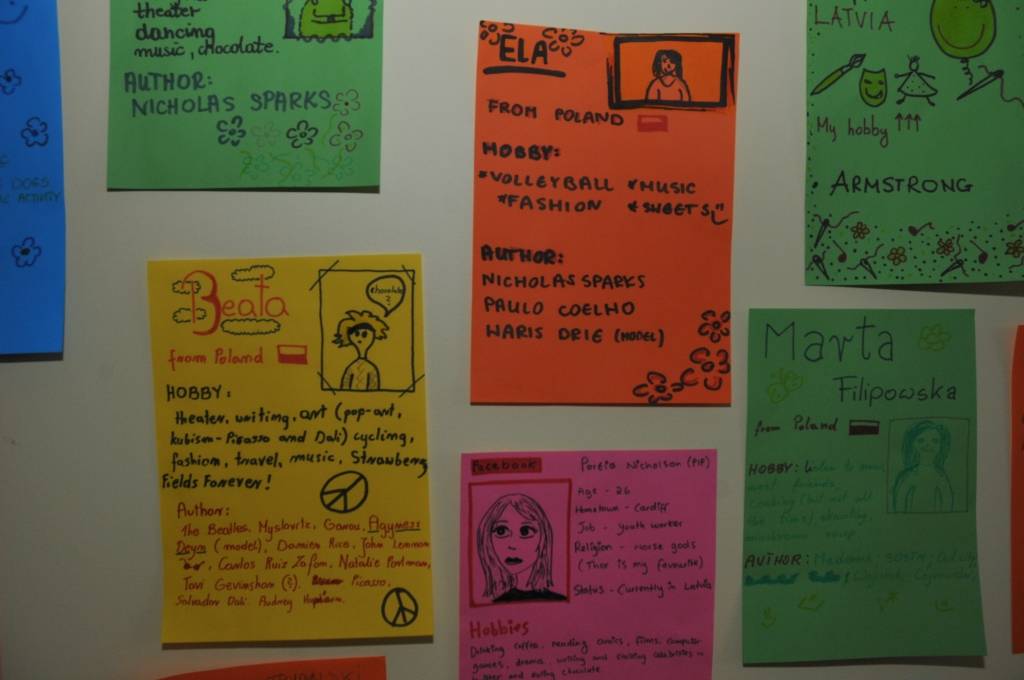 theater
dancing
music, chocolate.
AUTHOR:
NICHOLAS SPARKS
DOGS
ACTIVITY
ELA
FROM POLAND
HOBBY:
*VOLLEYBALL *MUSIC
*FASHION *SWEETS
AUTHOR:
NICHOLAS SPARKS
PAULO COELHO
HARIS DRIE (MODEL)
LATVIA
My hobby ↑↑↑
ARMSTRONG
Beata
chocolate
from Poland
HOBBY:
theater, writing, art (pop-art,
kubism-Picasso and Dali) cycling,
fashion, travel, music, Strawberry
Fields Forever!
Author:
The Beatles, Myslovitz, Garou, Agyness
Deyn (model), Damien Rice, John Lennon
Carlos Ruiz Zafon, Natalie Portman,
Tavi Gevinshon Picasso,
Salvador Dali. Audrey Hepburn.
Facebook Portia Nicholson (PIP)
Age - 26
Hometown - Cardiff
Job - youth worker
Religion - norse gods
(Thor is my favourite)
Status - Currently in Latvia
Hobbies
Drinking coffee, reading comics, films, computer
games, drama, writing and stalking celebrities on
twitter and eating chocolate.
Marta
Filipowska
from Poland
HOBBY: listen to music
meet friends,
cooking (but not all
the time) skating,
AUTHOR: